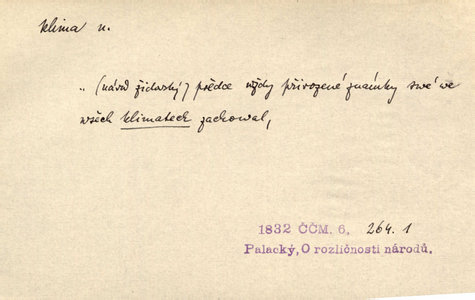 klima n.
.. (národ židovský) předce wždy přirozené známky swé we
wšech klimatech zachowal,
1832 ČČM. 6, 264.1
Palacký, O rozličnosti národů.